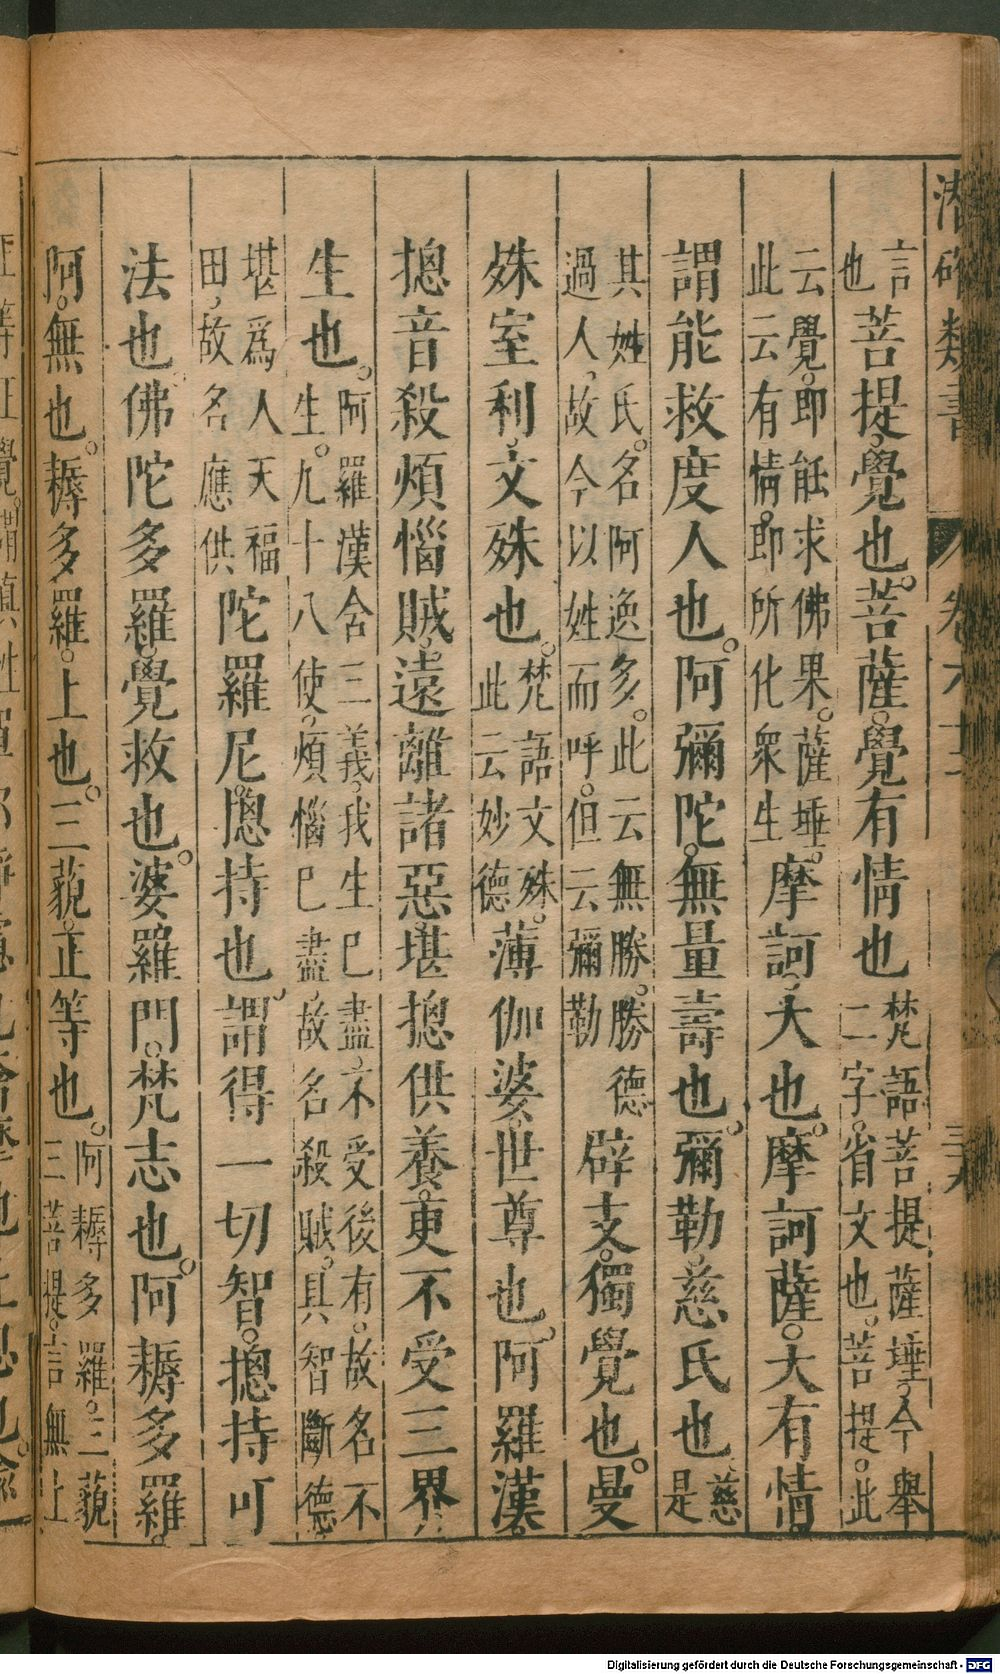 潛確類書 卷六十
言也菩提覺也菩薩覺有情也梵語菩提薩埵今舉二字省文也菩提此
云覺即能求佛果薩埵此云有情即所化衆生摩訶大也摩訶薩大有情
謂能救度人也阿彌陀無量壽也彌勒慈氏也慈是
其姓氏名阿逸多此云無勝勝德過人故今以姓而呼但云彌勒辟支獨覺也曼
殊室利文殊也梵語文殊此云妙德薄伽婆世尊也阿羅漢
摠音殺煩惱賊遠離諸惡堪摠供養更不受三界
生也阿羅漢含三義我生已盡不受後有故名不生九十八使煩惱已盡故名殺賊具智斷德
堪爲人天福田故名應供陀羅尼摠持也謂得一切智摠持可
法也佛陀多羅覺救也婆羅門梵志也阿耨多羅
阿無也耨多羅上也三藐正等也阿耨多羅三藐三菩提言無上
Digitalisierung gefördert durch die Deutsche Forschungsgemeinschaft - DFG